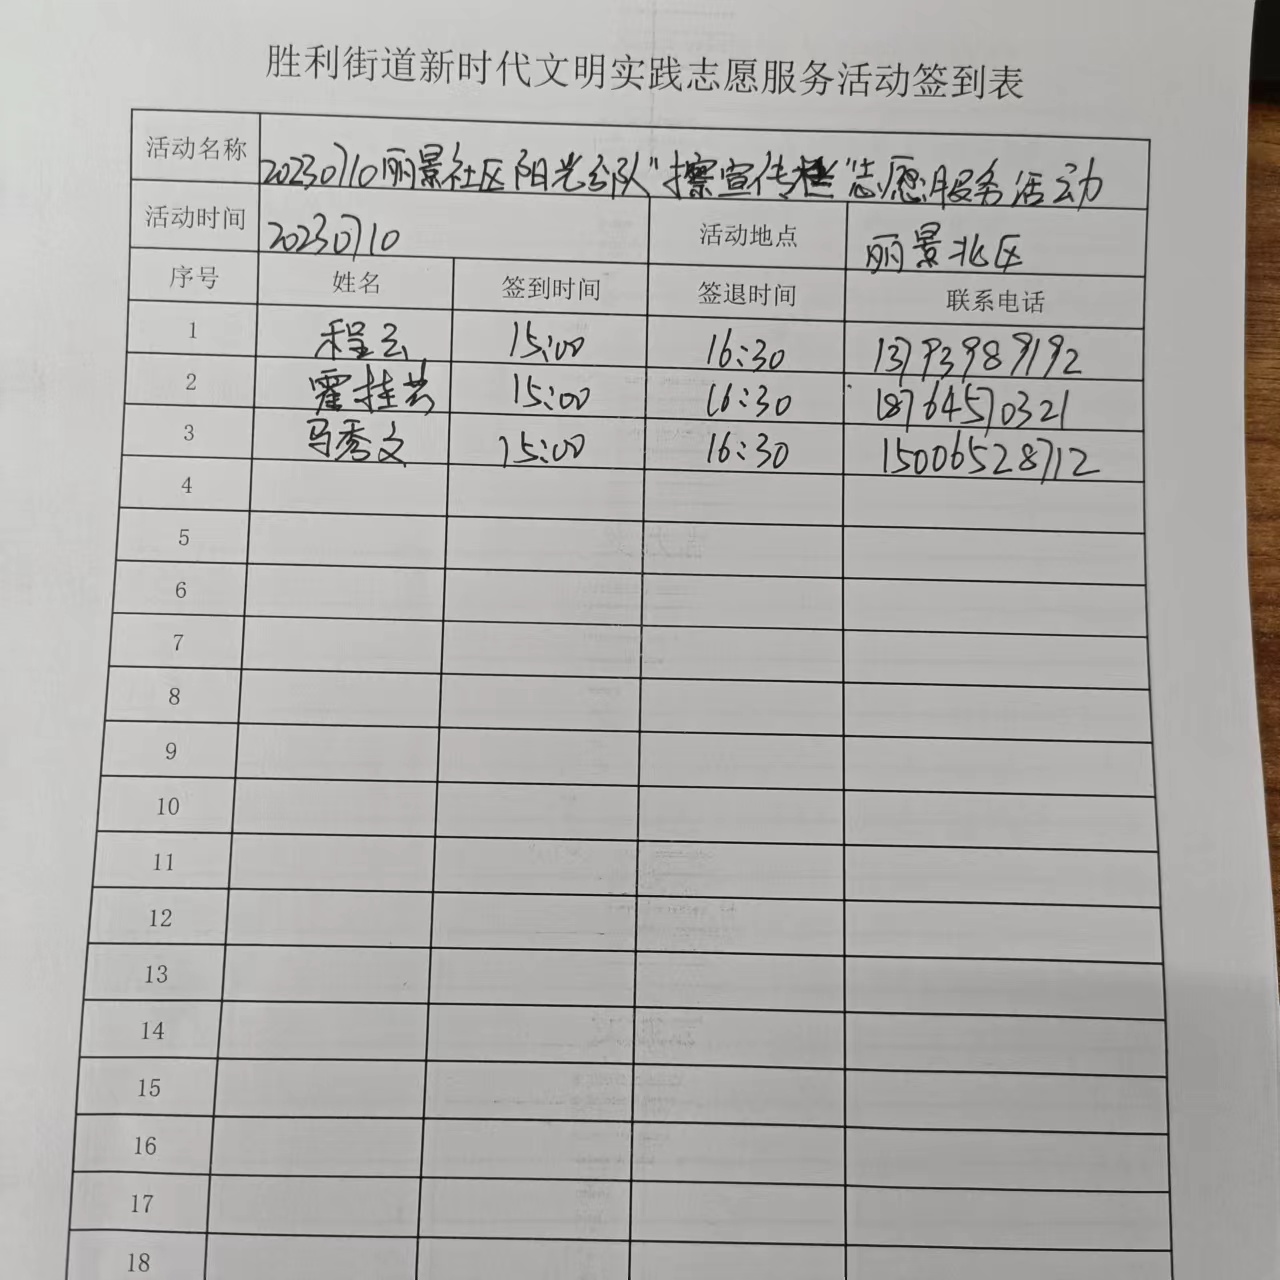 胜利街道新时代文明实践志愿服务活动签到表
活动名称 20230710丽景社区阳光分队"擦宣传栏"志愿服务活动
活动时间 20230710 活动地点 丽景北区
序号 姓名 签到时间 签退时间 联系电话
1 程云 15:00 16:30 13793989192
2 霍桂芸 15:00 16:30 18764570321
3 马秀文 15:00 16:30 15006528712
4
5
6
7
8
9
10
11
12
13
14
15
16
17
18